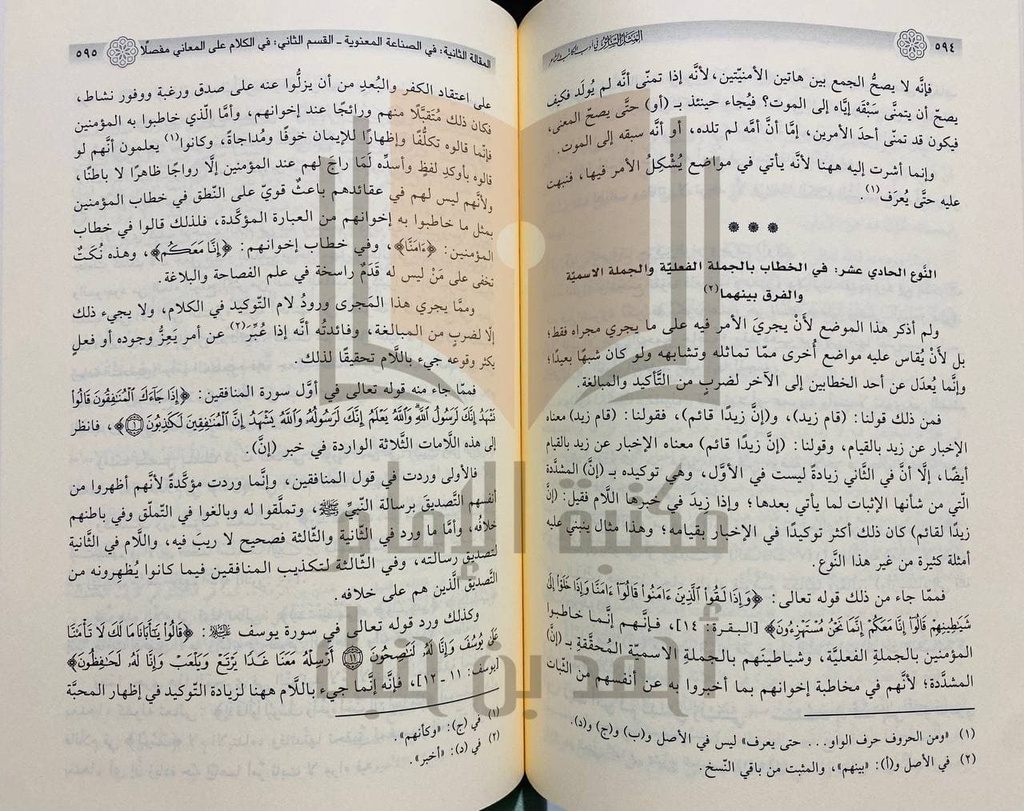 ٥٩٤ المثل السائر في أدب الكاتب والشاعر
فإنَّه لا يصحُّ الجمع بين هاتين الأمنيّتين، لأنَّه إذا تمنّى أنَّه لم يُولَد فكيف
يصحّ أن يتمنَّى سَبْقَه إيَّاه إلى الموت؟ فيُجاء حينئذ بـ (أو) حتَّى يصحّ المعنى،
فيكون قد تمنّى أحدَ الأمرين، إمَّا أنَّ أمَّه لم تلده، أو أنَّه سبقه إلى الموت.
وإنما أشرت إليه ههنا لأنَّه يأتي في مواضع يُشْكِلُ الأمر فيها، فنبهت
عليه حتَّى يُعرَف(١).
* * *
النَّوع الحادي عشر: في الخطاب بالجملة الفعليَّة والجملة الاسميّة
والفرق بينهما(٢)
ولم أذكر هذا الموضع لأَنْ يجريَ الأمر فيه على ما يجري مجراه فقط؛
بل لأَنْ يُقاس عليه مواضع أُخرى ممّا تماثله وتشابهه ولو كان شبهًا بعيدًا؛
وإنَّما يُعدَل عن أحد الخطابين إلى الآخر لضربٍ من التَّأكيد والمبالغة.
فمن ذلك قولنا: (قام زيد)، و(إنَّ زيدًا قائم)، فقولنا: (قام زيد) معناه
الإخبار عن زيد بالقيام، وقولنا: (إنَّ زيدًا قائم) معناه الإخبار عن زيد بالقيام
أيضًا، إلَّا أنَّ في الثَّاني زيادةً ليست في الأوَّل، وهي توكيده بـ (إنَّ) المشدَّدة
الَّتي من شأنها الإثبات لما يأتي بعدها؛ وإذا زيدَ في خبرها اللَّام فقيل: (إنَّ
زيدًا لقائم) كان ذلك أكثر توكيدًا في الإخبار بقيامه؛ وهذا مثال ينبني عليه
أمثلة كثيرة من غير هذا النَّوع.
فممَّا جاء من ذلك قوله تعالى: ﴿وَإِذَا لَقُوا۟ ٱلَّذِينَ ءَامَنُوا۟ قَالُوٓا۟ ءَامَنَّا وَإِذَا خَلَوْا۟ إِلَىٰ
شَيَـٰطِينِهِمْ قَالُوٓا۟ إِنَّا مَعَكُمْ إِنَّمَا نَحْنُ مُسْتَهْزِءُونَ﴾ [البـقـرة: ١٤]، فـإنَّـهـم إنَّـمـا خـاطـبـوا
المؤمنين بالجملةِ الفعليَّة، وشياطينَهم بالجملةِ الاسميّة المُحقَّقةِ بـ (إنَّ)
المشدَّدة؛ لأنَّهم في مخاطبة إخوانهم بما أخبروا به عن أنفسهم من الثَّبات
(١) «ومن الحروف حرف الواو... حتى يعرف» ليس في الأصل و(ب) و(ج) و(د).
(٢) في الأصل و(أ): «بينهم»، والمثبت من باقي النّسخ.
المقالة الثانية: في الصناعة المعنوية - القسم الثاني: في الكلام على المعاني مفصلًا ٥٩٥
على اعتقاد الكفر والبُعدِ من أن يزلُّوا عنه على صدق ورغبة ووفور نشاط،
فكان ذلك مُتَقبَّلًا منهم ورائجًا عند إخوانهم، وأمَّا الَّذي خاطبوا به المؤمنين
فإنَّما قالوه تكلُّفًا وإظهارًا للإيمان خوفًا ومُداجاةً، وكانوا(١) يعلمون أنَّهم لو
قالوه بأوكدِ لفظٍ وأسدِّه لَمَا راجَ لهم عند المؤمنين إلَّا رواجًا ظاهرًا لا باطنًا،
ولأنَّهم ليس لهم في عقائدهم باعثٌ قويّ على النَّطق في خطاب المؤمنين
بمثل ما خاطبوا به إخوانهم من العبارة المؤكَّدة، فلذلك قالوا في خطاب
المؤمنين: ﴿ءَامَنَّا﴾، وفي خطاب إخوانهم: ﴿إِنَّا مَعَكُمْ﴾، وهذه نُكَتٌ
تخفى على مَنْ ليس له قَدَمٌ راسخة في علم الفصاحة والبلاغة.
وممَّا يجري هذا المَجرى ورودُ لام التَّوكيد في الكلام، ولا يجيء ذلك
إلَّا لضربٍ من المبالغة، وفائدتُه أنَّه إذا عُبِّرَ(٢) عن أمر يَعِزُّ وجوده أو فعلٍ
يكثر وقوعه جيء باللَّام تحقيقًا لذلك.
فممَّا جاء منه قوله تعالى في أوَّل سورة المنافقين: ﴿إِذَا جَآءَكَ ٱلْمُنَـٰفِقُونَ قَالُوا۟
نَشْهَدُ إِنَّكَ لَرَسُولُ ٱللَّهِ وَٱللَّهُ يَعْلَمُ إِنَّكَ لَرَسُولُهُۥ وَٱللَّهُ يَشْهَدُ إِنَّ ٱلْمُنَـٰفِقِينَ لَكَـٰذِبُونَ ١﴾، فانظر
إلى هذه اللَّامات الثَّلاثة الواردة في خبر (إنَّ).
فالأولى وردت في قول المنافقين، وإنَّما وردت مؤكَّدةً لأنَّهم أظهروا من
أنفسهم التَّصديقَ برسالة النَّبيّ ﷺ، وتملَّقوا له وبالغوا في التّملّق وفي باطنهم
خلافُه، وأمَّا ما ورد في الثَّانية والثَّالثة فصحيح لا ريبَ فيه، واللَّام في الثَّانية
لتصديق رسالته، وفي الثَّالثة لتكذيب المنافقين فيما كانوا يُظهِرونه من
التَّصديق الَّذين هم على خلافه.
وكذلك ورد قوله تعالى في سورة يوسف ﷺ: ﴿قَالُوا۟ يَـٰٓأَبَانَا مَا لَكَ لَا تَأْمَ۫نَّا
عَلَىٰ يُوسُفَ وَإِنَّا لَهُۥ لَنَـٰصِحُونَ ١١ أَرْسِلْهُ مَعَنَا غَدًا يَرْتَعْ وَيَلْعَبْ وَإِنَّا لَهُۥ لَحَـٰفِظُونَ﴾
[يوسف: ١١-١٢]، فإنَّه إنَّما جيء باللَّام ههنا لزيادة التَّوكيد في إظهار المحبَّة
(١) في (ج): «وكأنهم».
(٢) في (د): «أخبر».
مكتبة الإمام
أحمد بن حنبل